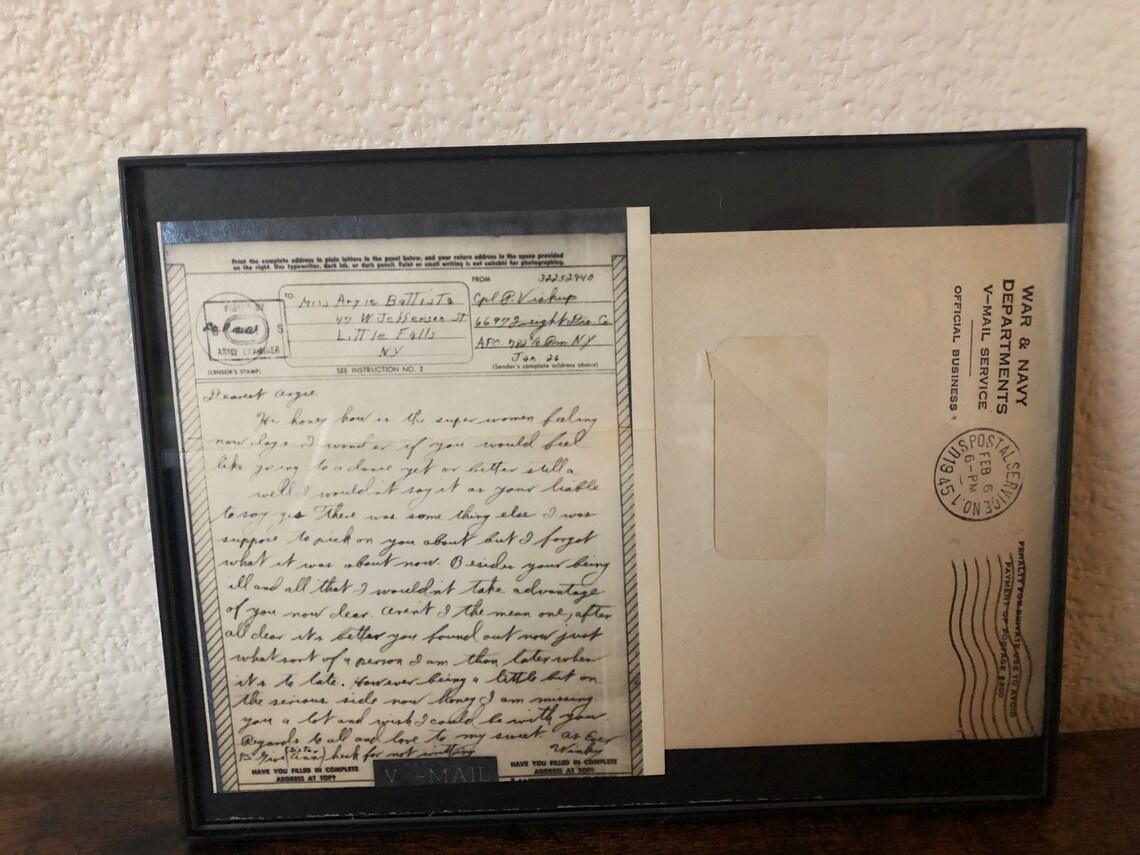 Print the complete address in plain letters in the panel below, and your return address in the space provided
on the right. Use typewriter, dark ink, or dark pencil. Faint or small writing is not suitable for photographing.
PASSED BY
S
ARMY EXAMINER
(CENSOR'S STAMP)
TO
Miss Argie Battista
47 W Jefferson St
Little Falls
NY
SEE INSTRUCTION NO. 2
FROM
32252940
Cpl P. Viskup
APO 782 % P.m. N.Y
Jan. 26
(Sender's complete address above)
Dearest Argie
Hi honey how is the super women feeling
now days. I wonder if you would feel
like going to a dance yet or better still a
well I wouldn't say it as your liable
to say yes There was some thing else I was
suppose to pick on you about but I forgot
what it was about now. Besides your being
ill and all that I wouldn't take advantage
of you now dear. Arent I the mean one, after
all dear it's better you found out now just
what sort of a person I am than later when
it's to late. However being a little bit on
the serious side now Honey I am missing
you a lot and wish I could be with you.
Regards to all and love to my sweet. As Ever
Winky
P.S. Give (sister Ann) heck for not writting
HAVE YOU FILLED IN COMPLETE
ADDRESS AT TOP?
V-MAIL
HAVE YOU FILLED IN COMPLETE
ADDRESS AT TOP?
WAR & NAVY
DEPARTMENTS
V-MAIL SERVICE
OFFICIAL BUSINESS
U.S. POSTAL SERVICE NO. 1
FEB 6
6-PM
1945
PENALTY FOR PRIVATE USE TO AVOID
PAYMENT OF POSTAGE $300